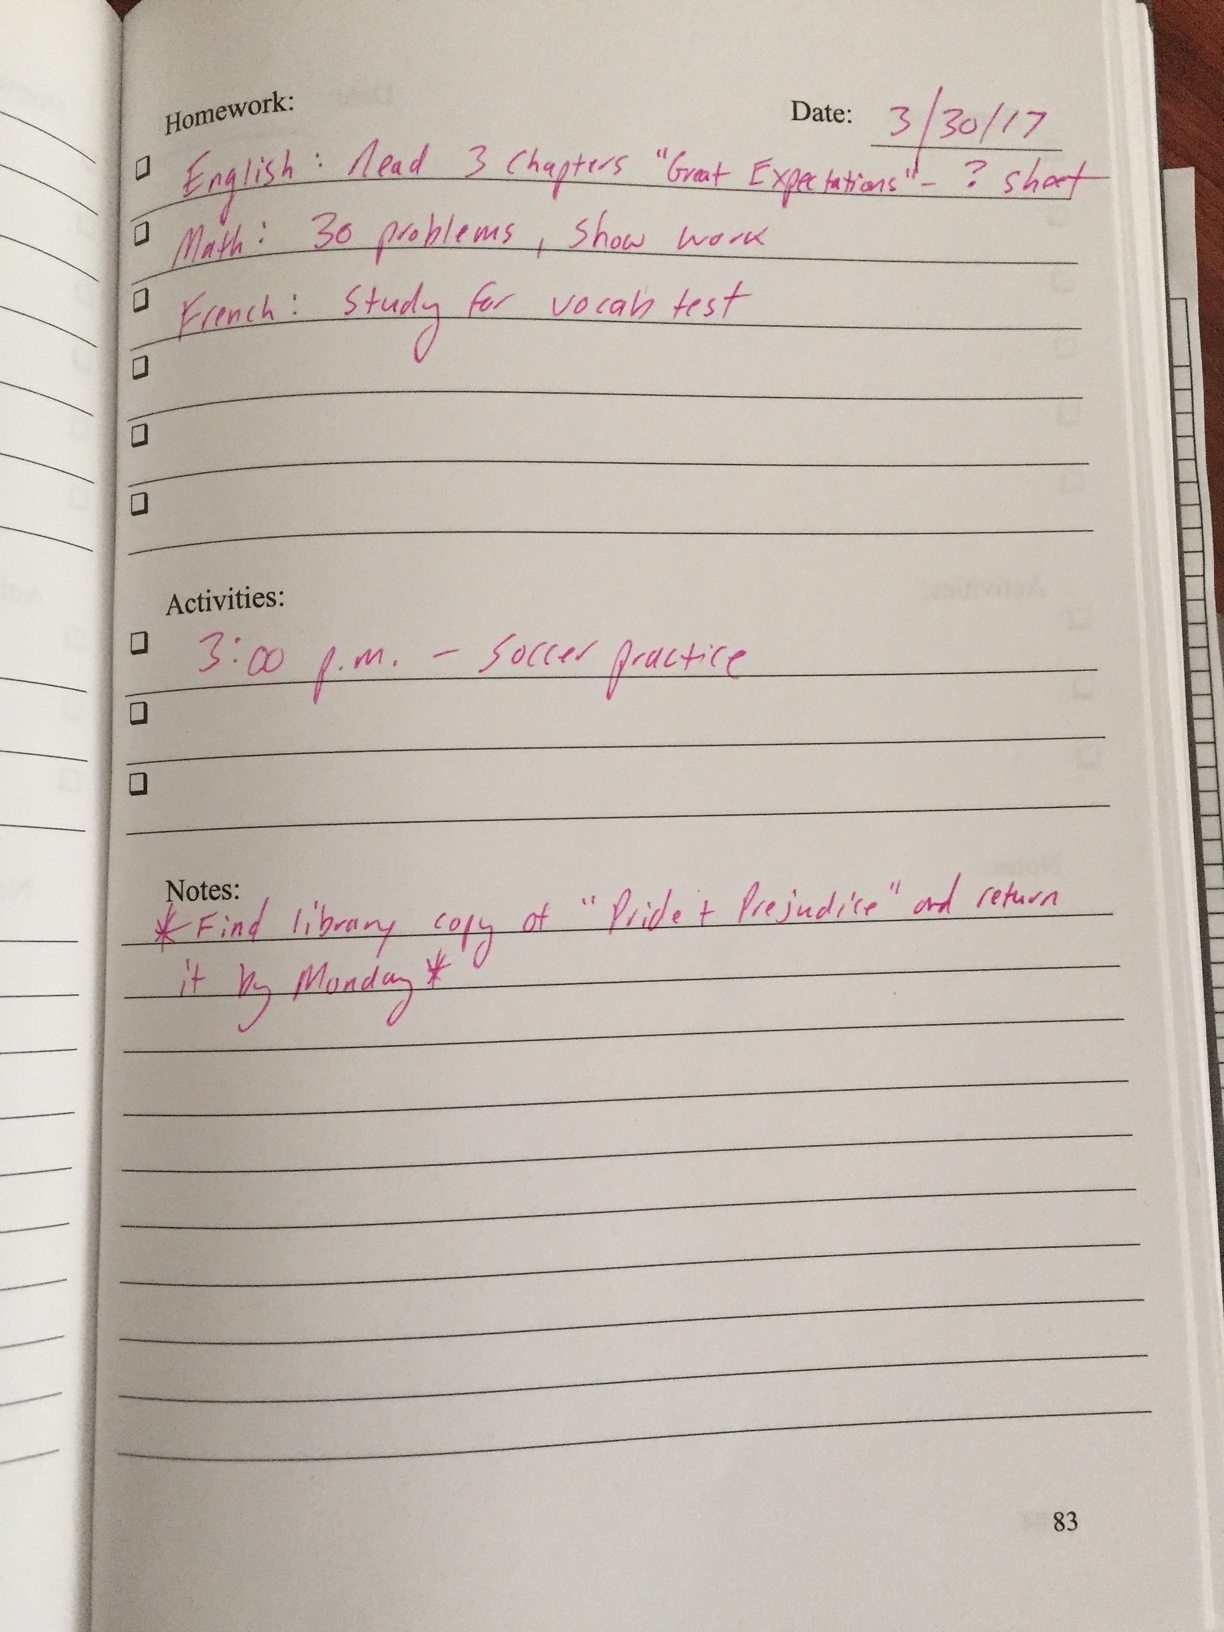 Homework:
Date: 3/30/17
English: Read 3 Chapters "Great Expectations" - ? sheet
Math: 30 problems, show work
French: Study for vocab test
Activities:
3:00 p.m. - Soccer practice
Notes:
*Find library copy of "Pride + Prejudice" and return
it by Monday*
83